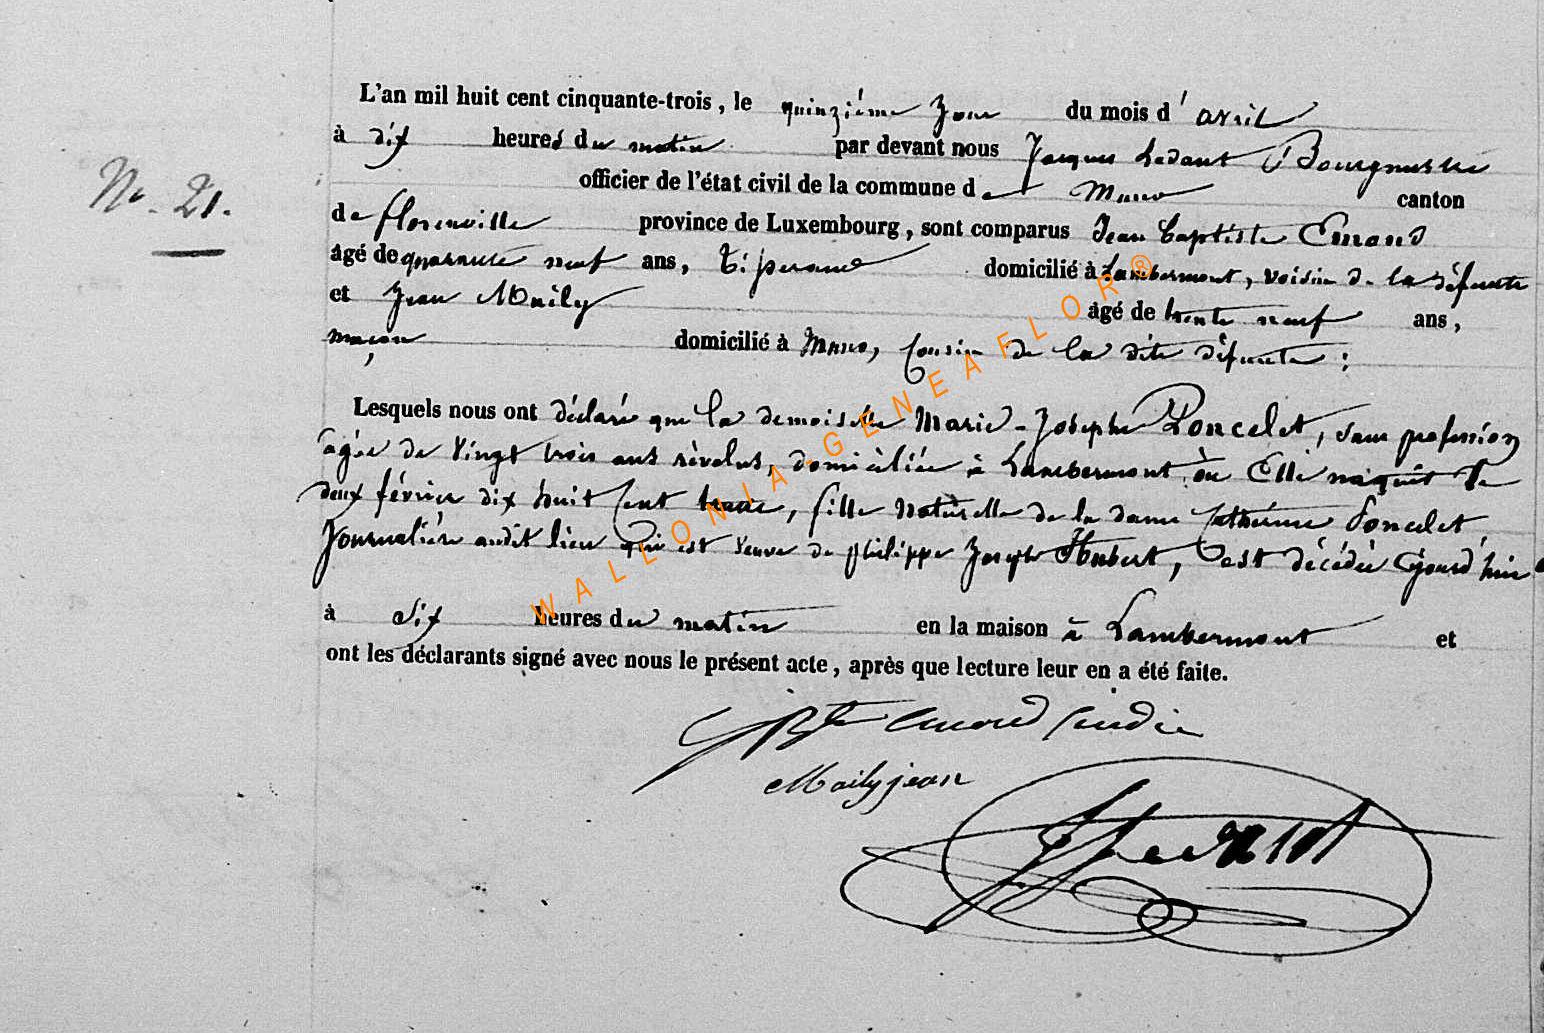 L'an mil huit cent cinquante-trois, le quinzième jour du mois d'avril
à dix heures du matin par devant nous Jacques Ledant Bourgmestre
officier de l'état civil de la commune de Muno canton
de florenville province de Luxembourg, sont comparus Jean Baptiste Emond
âgé de quarante neuf ans, domicilié à Lambermont, voisin de la défunte
et Jean Maily âgé de trente neuf ans,
maçon domicilié à Muno, Cousin de la dite défunte ;
N° 21.
Lesquels nous ont déclaré que la demoiselle Marie-Josephe Poncelet, sans profession
agée de Vingt trois ans révolus, domiciliée à Lambermont où Elle naquit le
deux février dix huit Cent trente, fille Naturelle de la dame Cathérine Poncelet
Journalière audit lieu qui est Veuve de philippe Joseph Hubert, est décédée
à dix heures du matin en la maison à Lambermont et
ont les déclarants signé avec nous le présent acte, après que lecture leur en a été faite.
Maily jean
WALLONIA-GENEAFLOR®